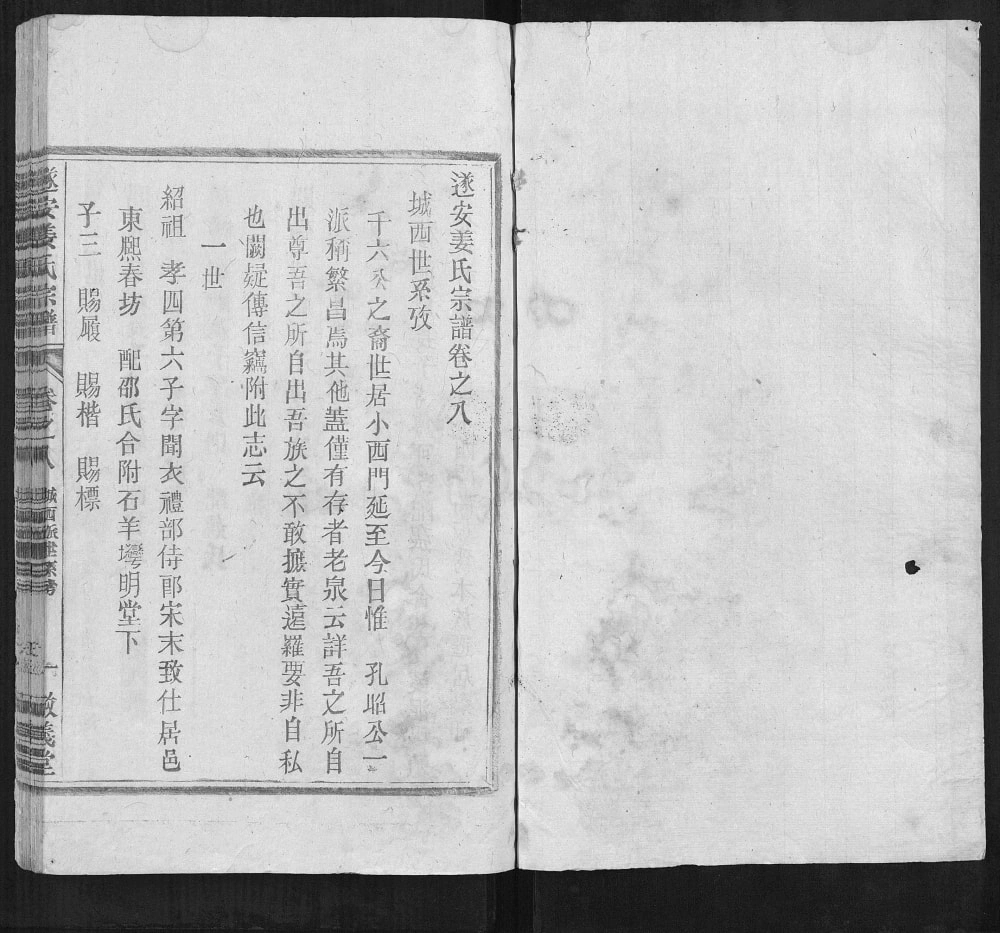 遂安姜氏宗譜卷之八
城西世系攷
千六公之裔世居小西門延至今日惟　孔昭公一
派稱繁昌焉其他蓋僅有存者老泉云詳吾之所自
出尊吾之所自出吾族之不敢摭實遠羅要非自私
也闕疑傳信竊附此志云
一世
紹祖　孝四第六子字聞衣禮部侍郎宋末致仕居邑
東熙春坊　配邵氏合附石羊塆明堂下
子三　賜履　賜楷　賜標
遂安姜氏宗譜　卷之八　城西派世系考　一　敬義堂